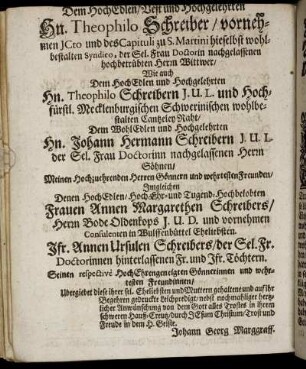 Dem HochEdlen/ Vest und Hochgelehrten
Hn. Theophilo Schreiber/ vorneh-
men JCto und des Capituli zu S. Martini hieselbst wohl-
bestalten Syndico, der Sel. Frau Doctorin nachgelassenen
hochbetrübten Herrn Wittwer/
Wie auch
Dem HochEdlen und Hochgelehrten
Hn. Theophilo Schreibern J. U. L. und Hoch-
fürstl. Mecklenburgischen Schwerinischen wohlbe-
stalten Cantzeley Raht/
Dem WohlEdlen und Hochgelehrten
Hn. Johann Hermann Schreibern J. U. L.
der Sel. Frau Doctorinn nachgelassenen Herrn
Söhnen/
Meinen Hochzuehrenden Herren Gönnern und wehrtesten Freunden/
Imgleichen
Denen HochEdlen/ Hoch-Ehr- und Tugend-Hochbelobten
Frauen Annen Margarethen Schreibers/
Herrn Bode Oldenkops J. U. D. und vornehmen
Consulenten in Wulffenbüttel Eheliebsten.
Jfr. Annen Ursulen Schreibers/ der Sel. Fr.
Doctorinnen hinterlassenen Fr. und Jfr. Töchtern.
Seinen respectivè HochEhrengeneigten Gönnerinnen und wehr-
testen Freundinnen/
Ubergiebet diese ihrer sel. Eheliebsten und Muttern gehaltene und auf ihr
Begehren gedruckte Leichpredigt/ nebst nochmahliger hertz-
licher Anwünschung von dem Gott alles Trostes in ihrem
schweren Hauß-Creutz/ durch JEsum Christum/ Trost und
Freude in dem H. Geiste.
Johann Georg Marggraff.